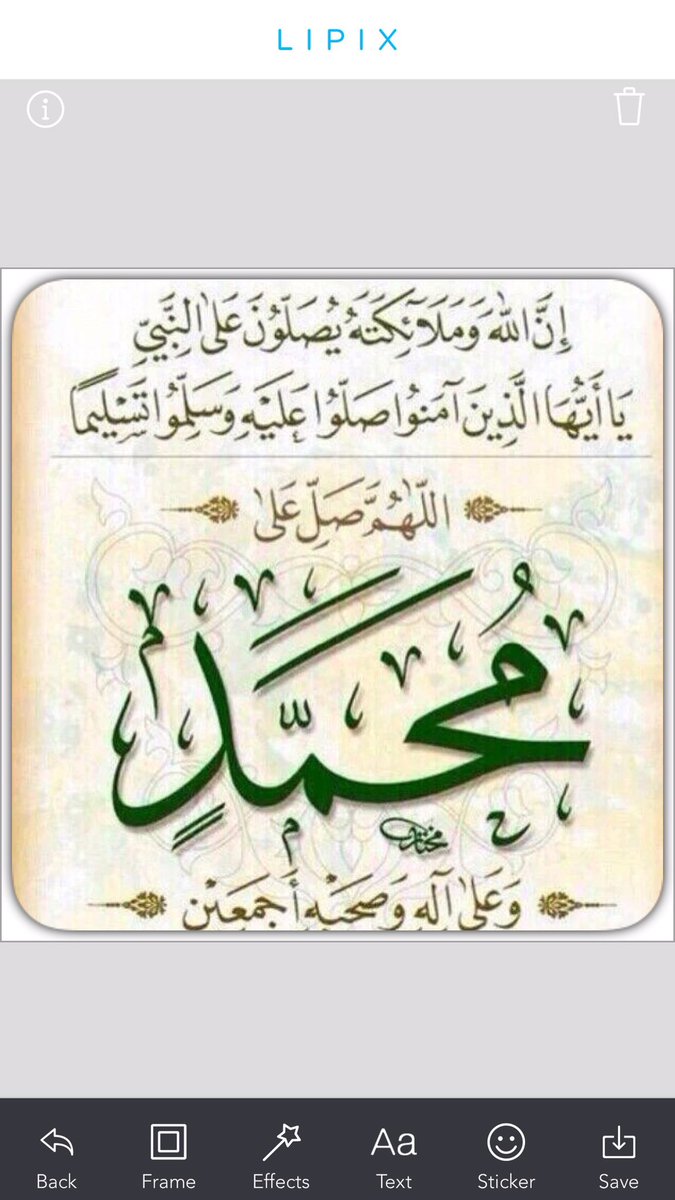 LIPIX
إِنَّ اللهَ وَمَلَآئِكَتَهُ يُصَلُّونَ عَلَى النَّبِيِّ
يَا أَيُّهَا الَّذِينَ آمَنُوا صَلُّوا عَلَيْهِ وَسَلِّمُوا تَسْلِيمًا
اللَّهُمَّ صَلِّ عَلَى
مُحَمَّدٍ
وَعَلَى آلِهِ وَصَحْبِهِ أَجْمَعِيْن
Back Frame Effects Text Sticker Save